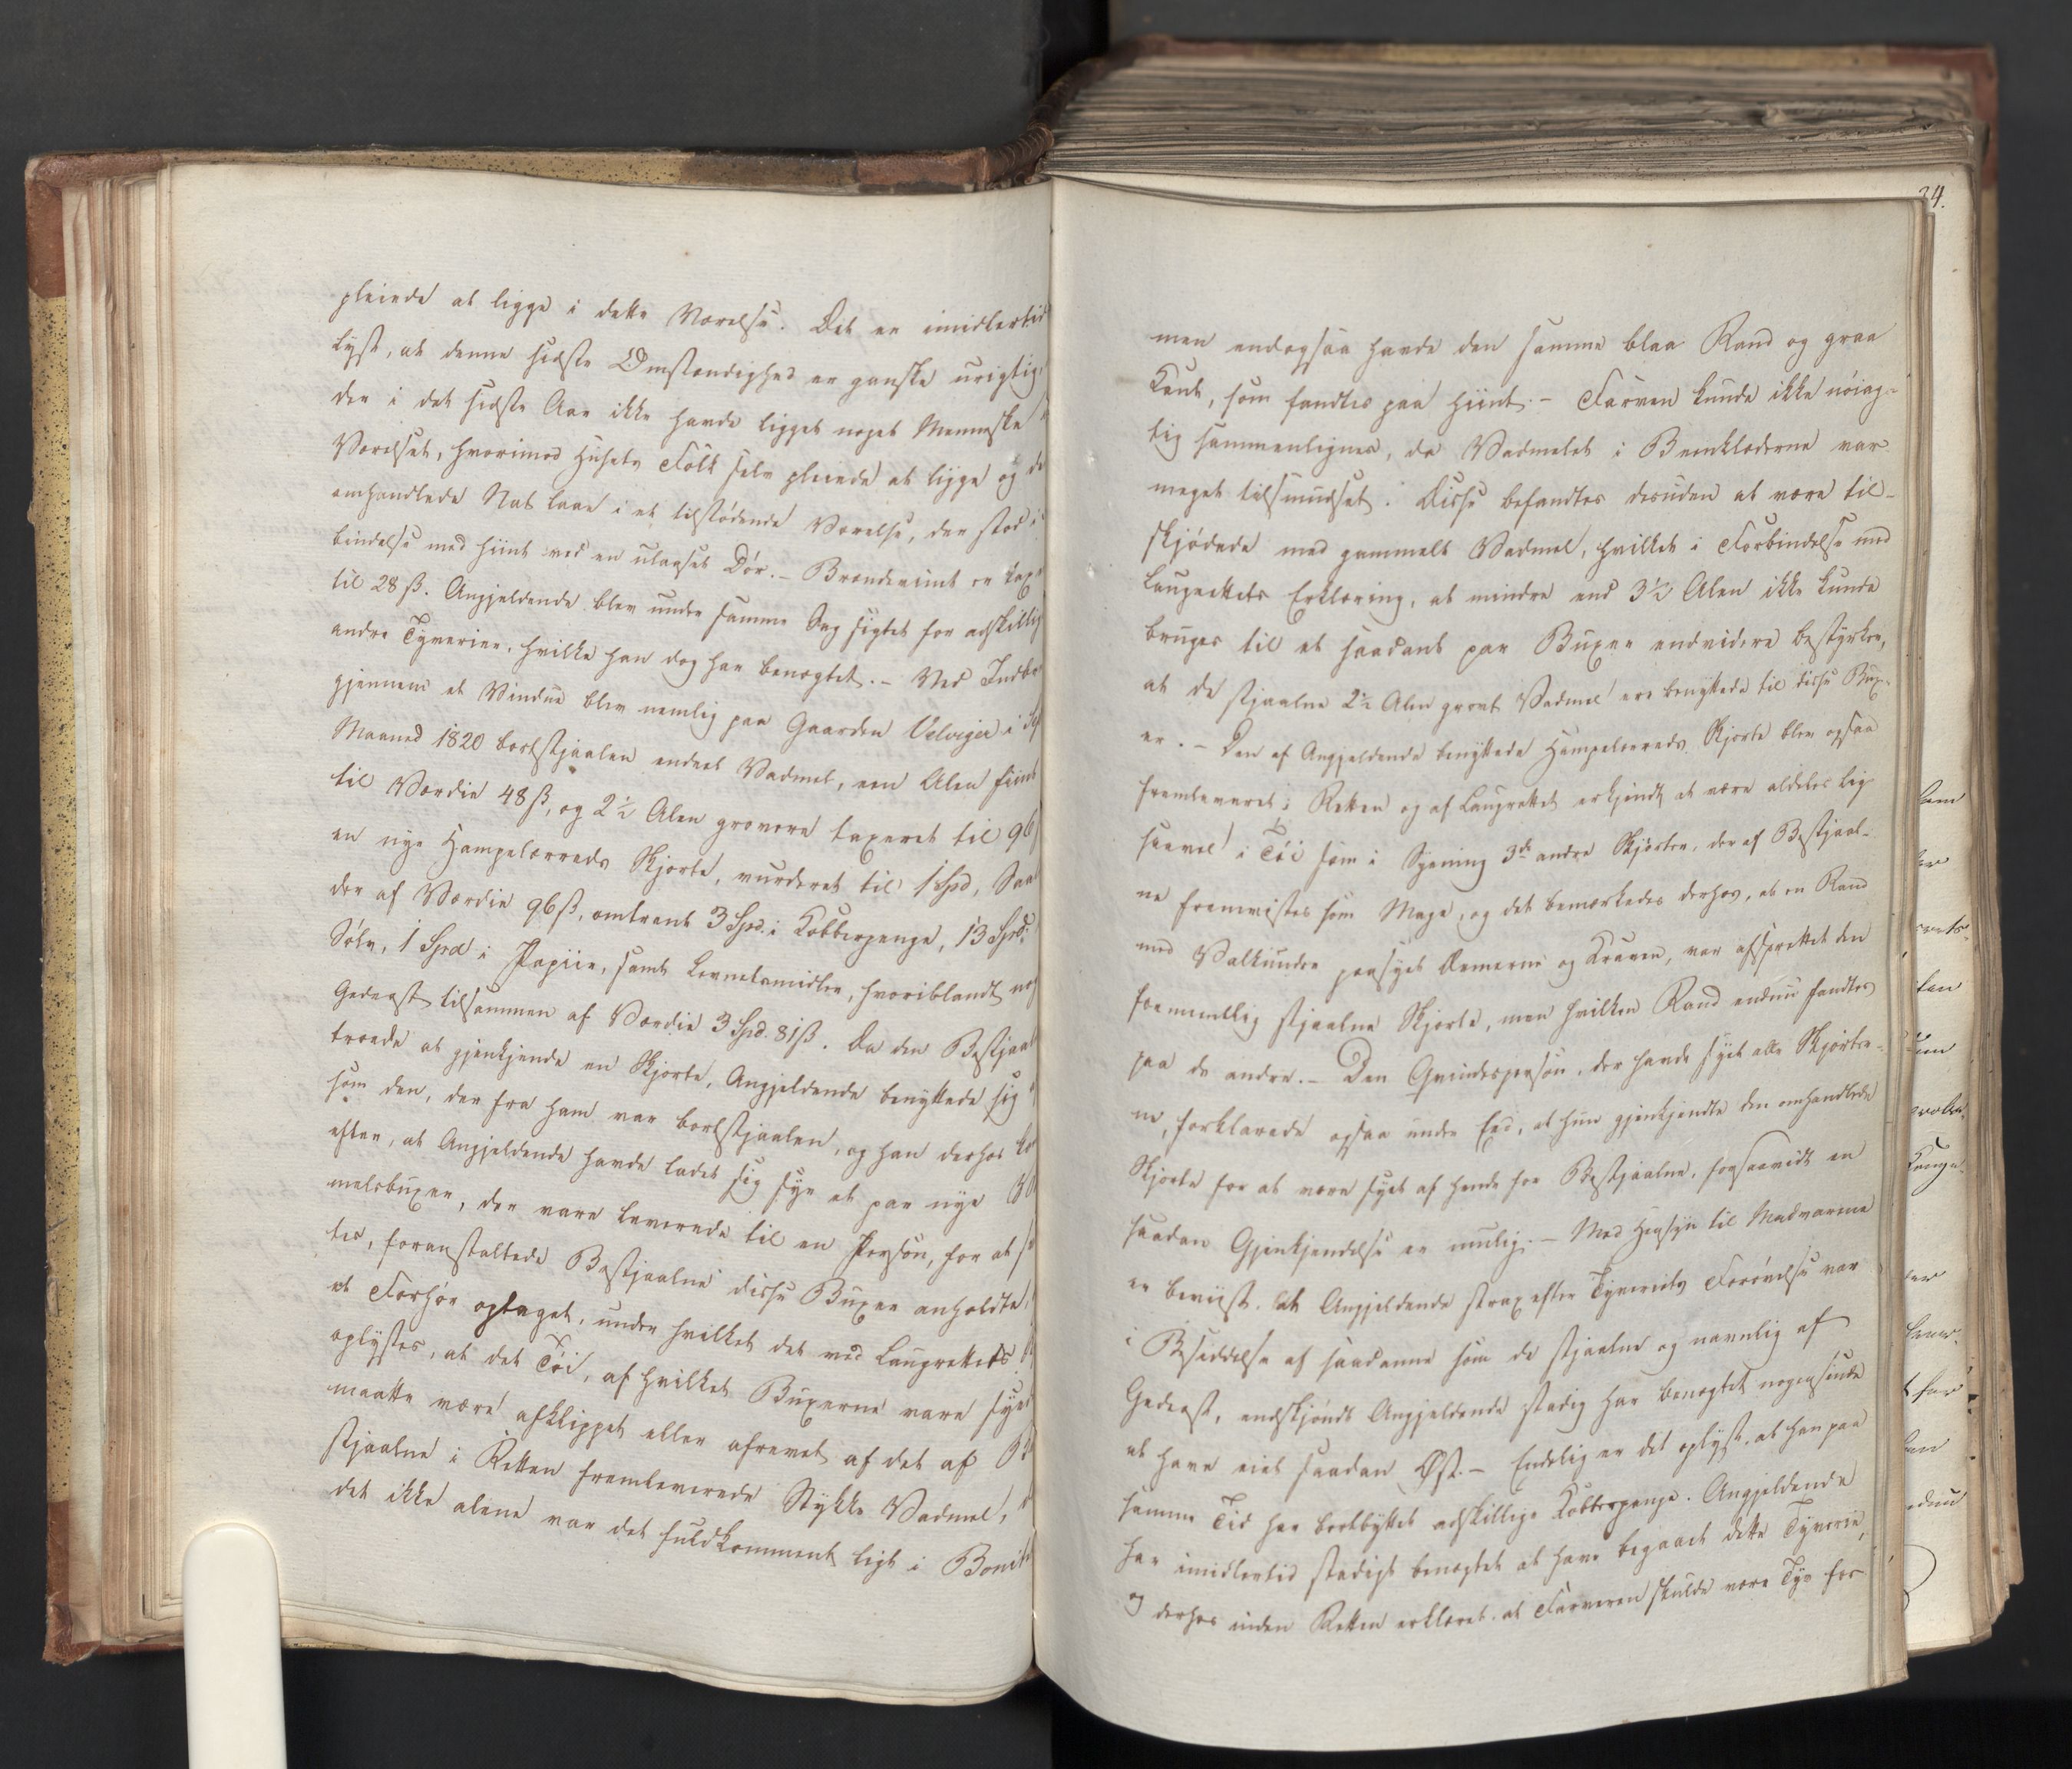 pleiede at ligge i dette Værelse. Det er imidlertid
lyst, at denne sidste Omstændighed er ganske urigtig,
der i det sidste Aar ikke havde ligget noget Menneske
Værelset, hvorimod Husets Folk selv pleiede at ligge og
omhandlede Nat laae i et tilstødende Værelse, der stod i
bindelse med hiint ved en ulaaset Dør. – Brændeviinet er
til 28 ß. Angjeldende blev under samme Sag sigtet for adskillig
andre Tyverier, hvilke han dog har benægtet. – Ved
gjennem et Vindue blev nemlig paa Gaarden Velvigen i
Maaned 1820 bortstjaalen endeel Vadmel, een Alen fiint
til Værdie 48 ß, og 2½ Alen grovere taxeret til 96
en nye Hampelærreds Skjorte, vurderet til 1 Spd,
der af Værdie 96 ß, omtrent 3 Spd. i Kobberpenge, 13 Spd.
Sølv, 1 Spd i Papiir, samt Levnetsmidler, hvoriblandt
Gedeost tilsammen af Værdie 3 Spd. 81 ß. Da den
troede at gjenkjende en Skjorte, Angjeldende benyttede sig
som den, der fra ham var bortstjaalen, og han derhos
efter, at Angjeldende havde ladet sig sye et par nye
melsbuxer, der vare leverede til en Person, for at
tes, foranstaltede Bestjaalne disse Buxer anholdte,
et Forhør optaget, under hvilket det ved Laugrettets
oplystes, at det Tøi, af hvilket Buxerne vare
maatte være afklippet eller afrevet af det af
stjaalne i Retten fremleverede Stykke Vadmel,
det ikke alene var det fuldkomment ligt i
34.
men endogsaa havde den samme blaa Rand og graa
Kant, som fandtes paa hiint. – Farven kunde ikke nøiag-
tig sammenlignes, da Vadmelet i Beenklæderne var
meget tilsmudset. Disse befandtes desuden at være til-
skjødede med gammelt Vadmel, hvilket i Forbindelse med
Laugrettets Erklæring, at mindre end 3½ Alen ikke kunde
bruges til et saadant par Buxer endvidere bestyrker,
at de stjaalne 2½ Alen grovt Vadmel ere benyttede til disse Bux-
er. – Den af Angjeldende benyttede Hampelærreds Skjorte blev ogsaa
fremleveret i Retten og af Laugrettet erkjendt at være aldeles lig
saavel i Tøi som i Syening 3de andre Skjorter, der af Bestjaal-
ne fremvistes som Mage, og det bemærkedes derhos, at en Rand
med paasyet Ærmerne og Kraven, var afsprettet den
formeentlig stjaalne Skjorte, men hvilken Rand endnu fandtes
paa de andre. – Den Qvindesperson, der havde syet alle Skjorter-
ne, forklarede ogsaa under Eed, at hun gjenkjendte den omhandlede
Skjorte for at være syet af hende for Bestjaalne, forsaavidt en
saadan Gjenkjendelse er mulig. – Med Hensyn til Madvarerne
er beviist, at Angjeldende strax efter Tyveriets Forøvelse var
i Besiddelse af saadanne som de stjaalne og navnlig af
Gedeost, endskjøndt Angjeldende stadig har benægtet nogensinde
at have eiet saadan Ost. – Endelig er det oplyst, at han paa
samme Tid har bortbyttet adskillige Kobberpenge. Angjeldende
har imidlertid stadigt benægtet at have begaaet dette Tyverie,
og derhos inden Retten erklæret, at Farveren skulde være Tyv for